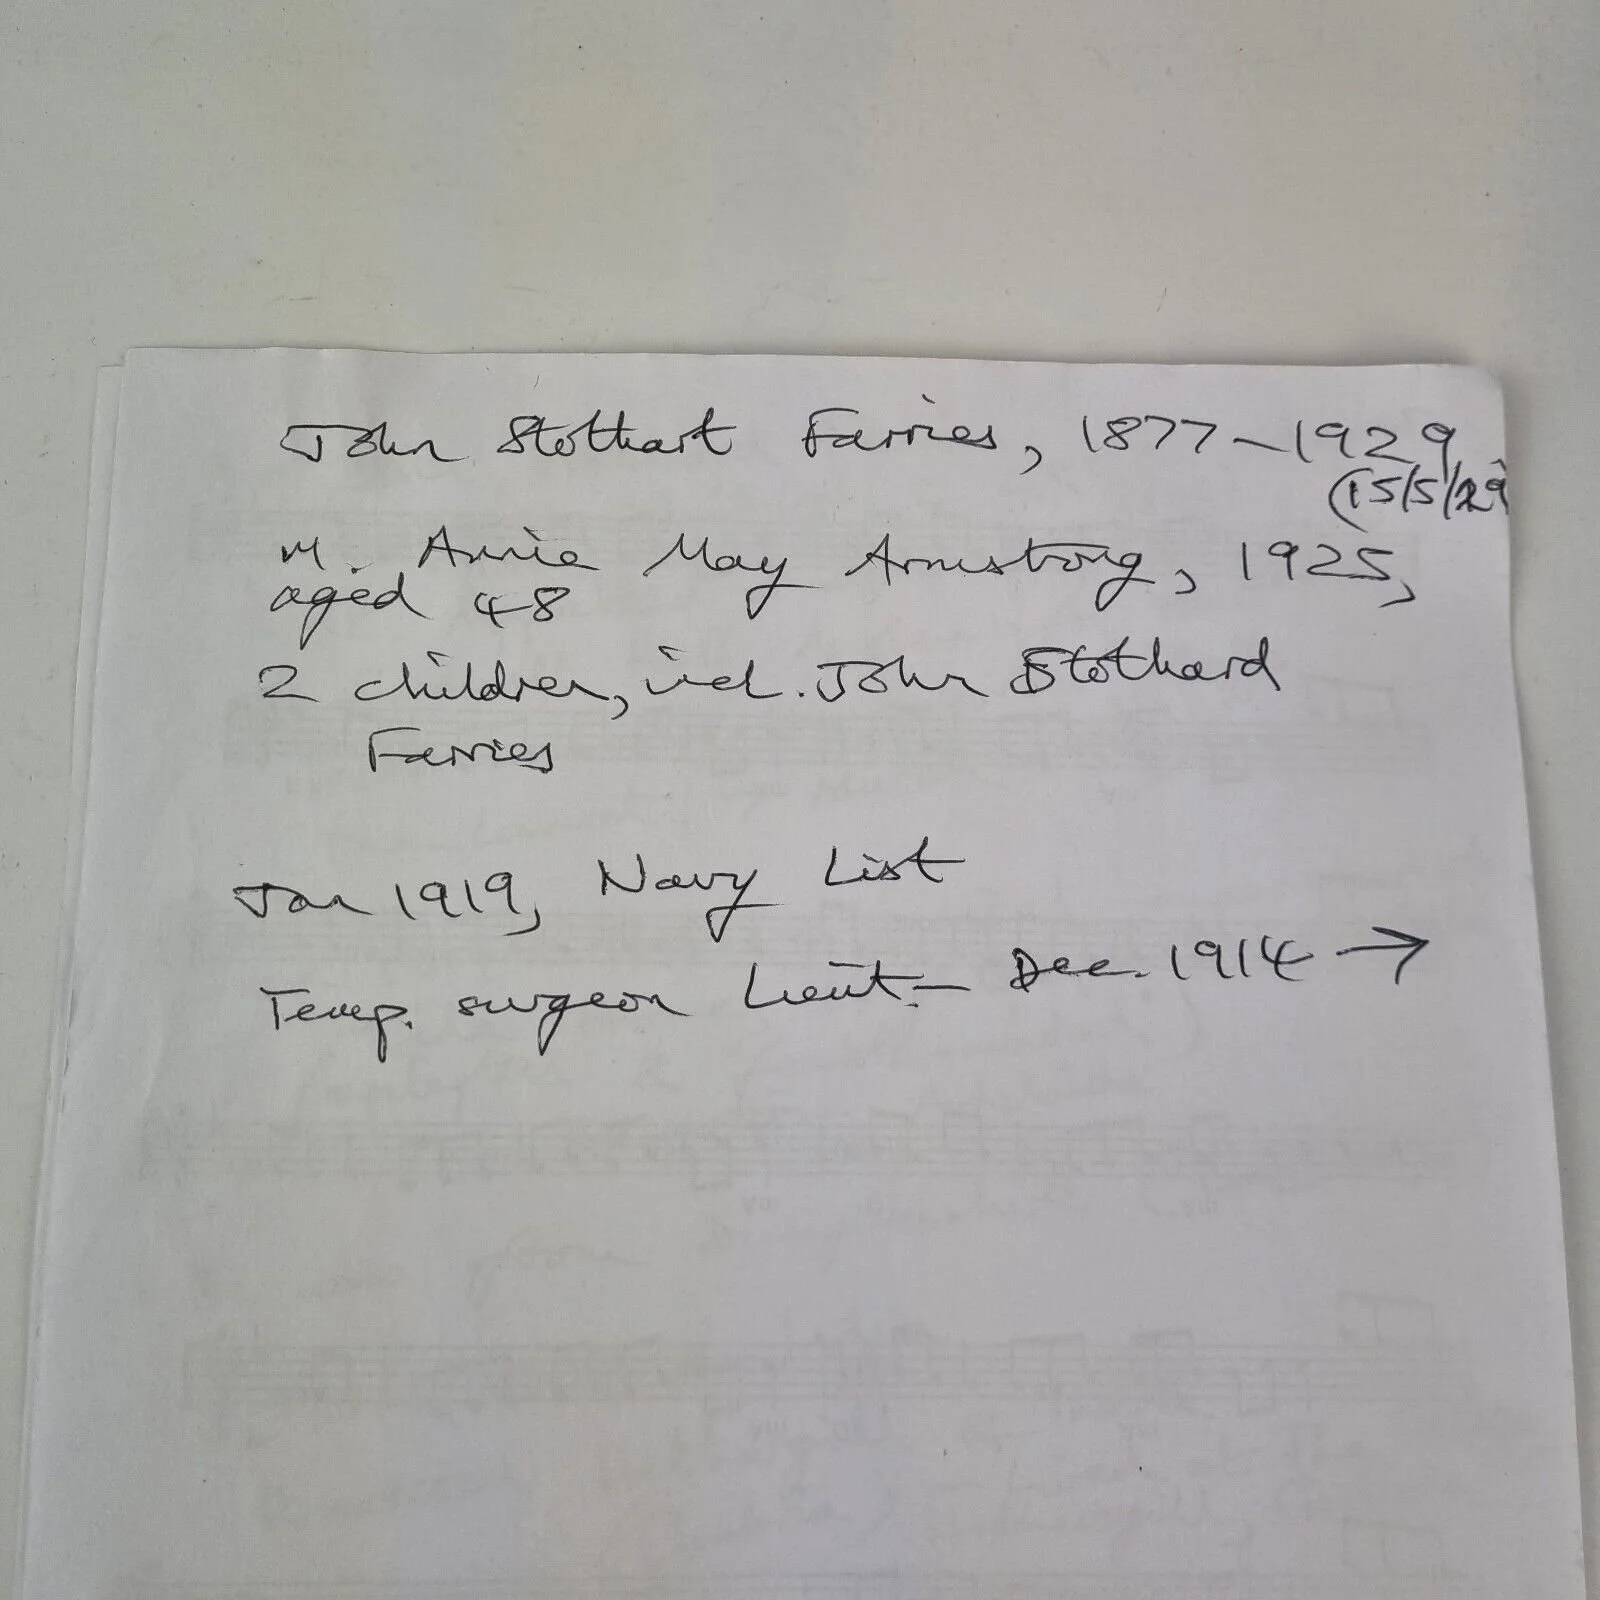 John Stothart Farries, 1877-1929
(15/5/29
m. Annie May Armstrong, 1925,
aged 48
2 children, incl. John Stothard
Farries
Jan 1919, Navy List
Temp. surgeon Lieut. - Dec. 1914 →